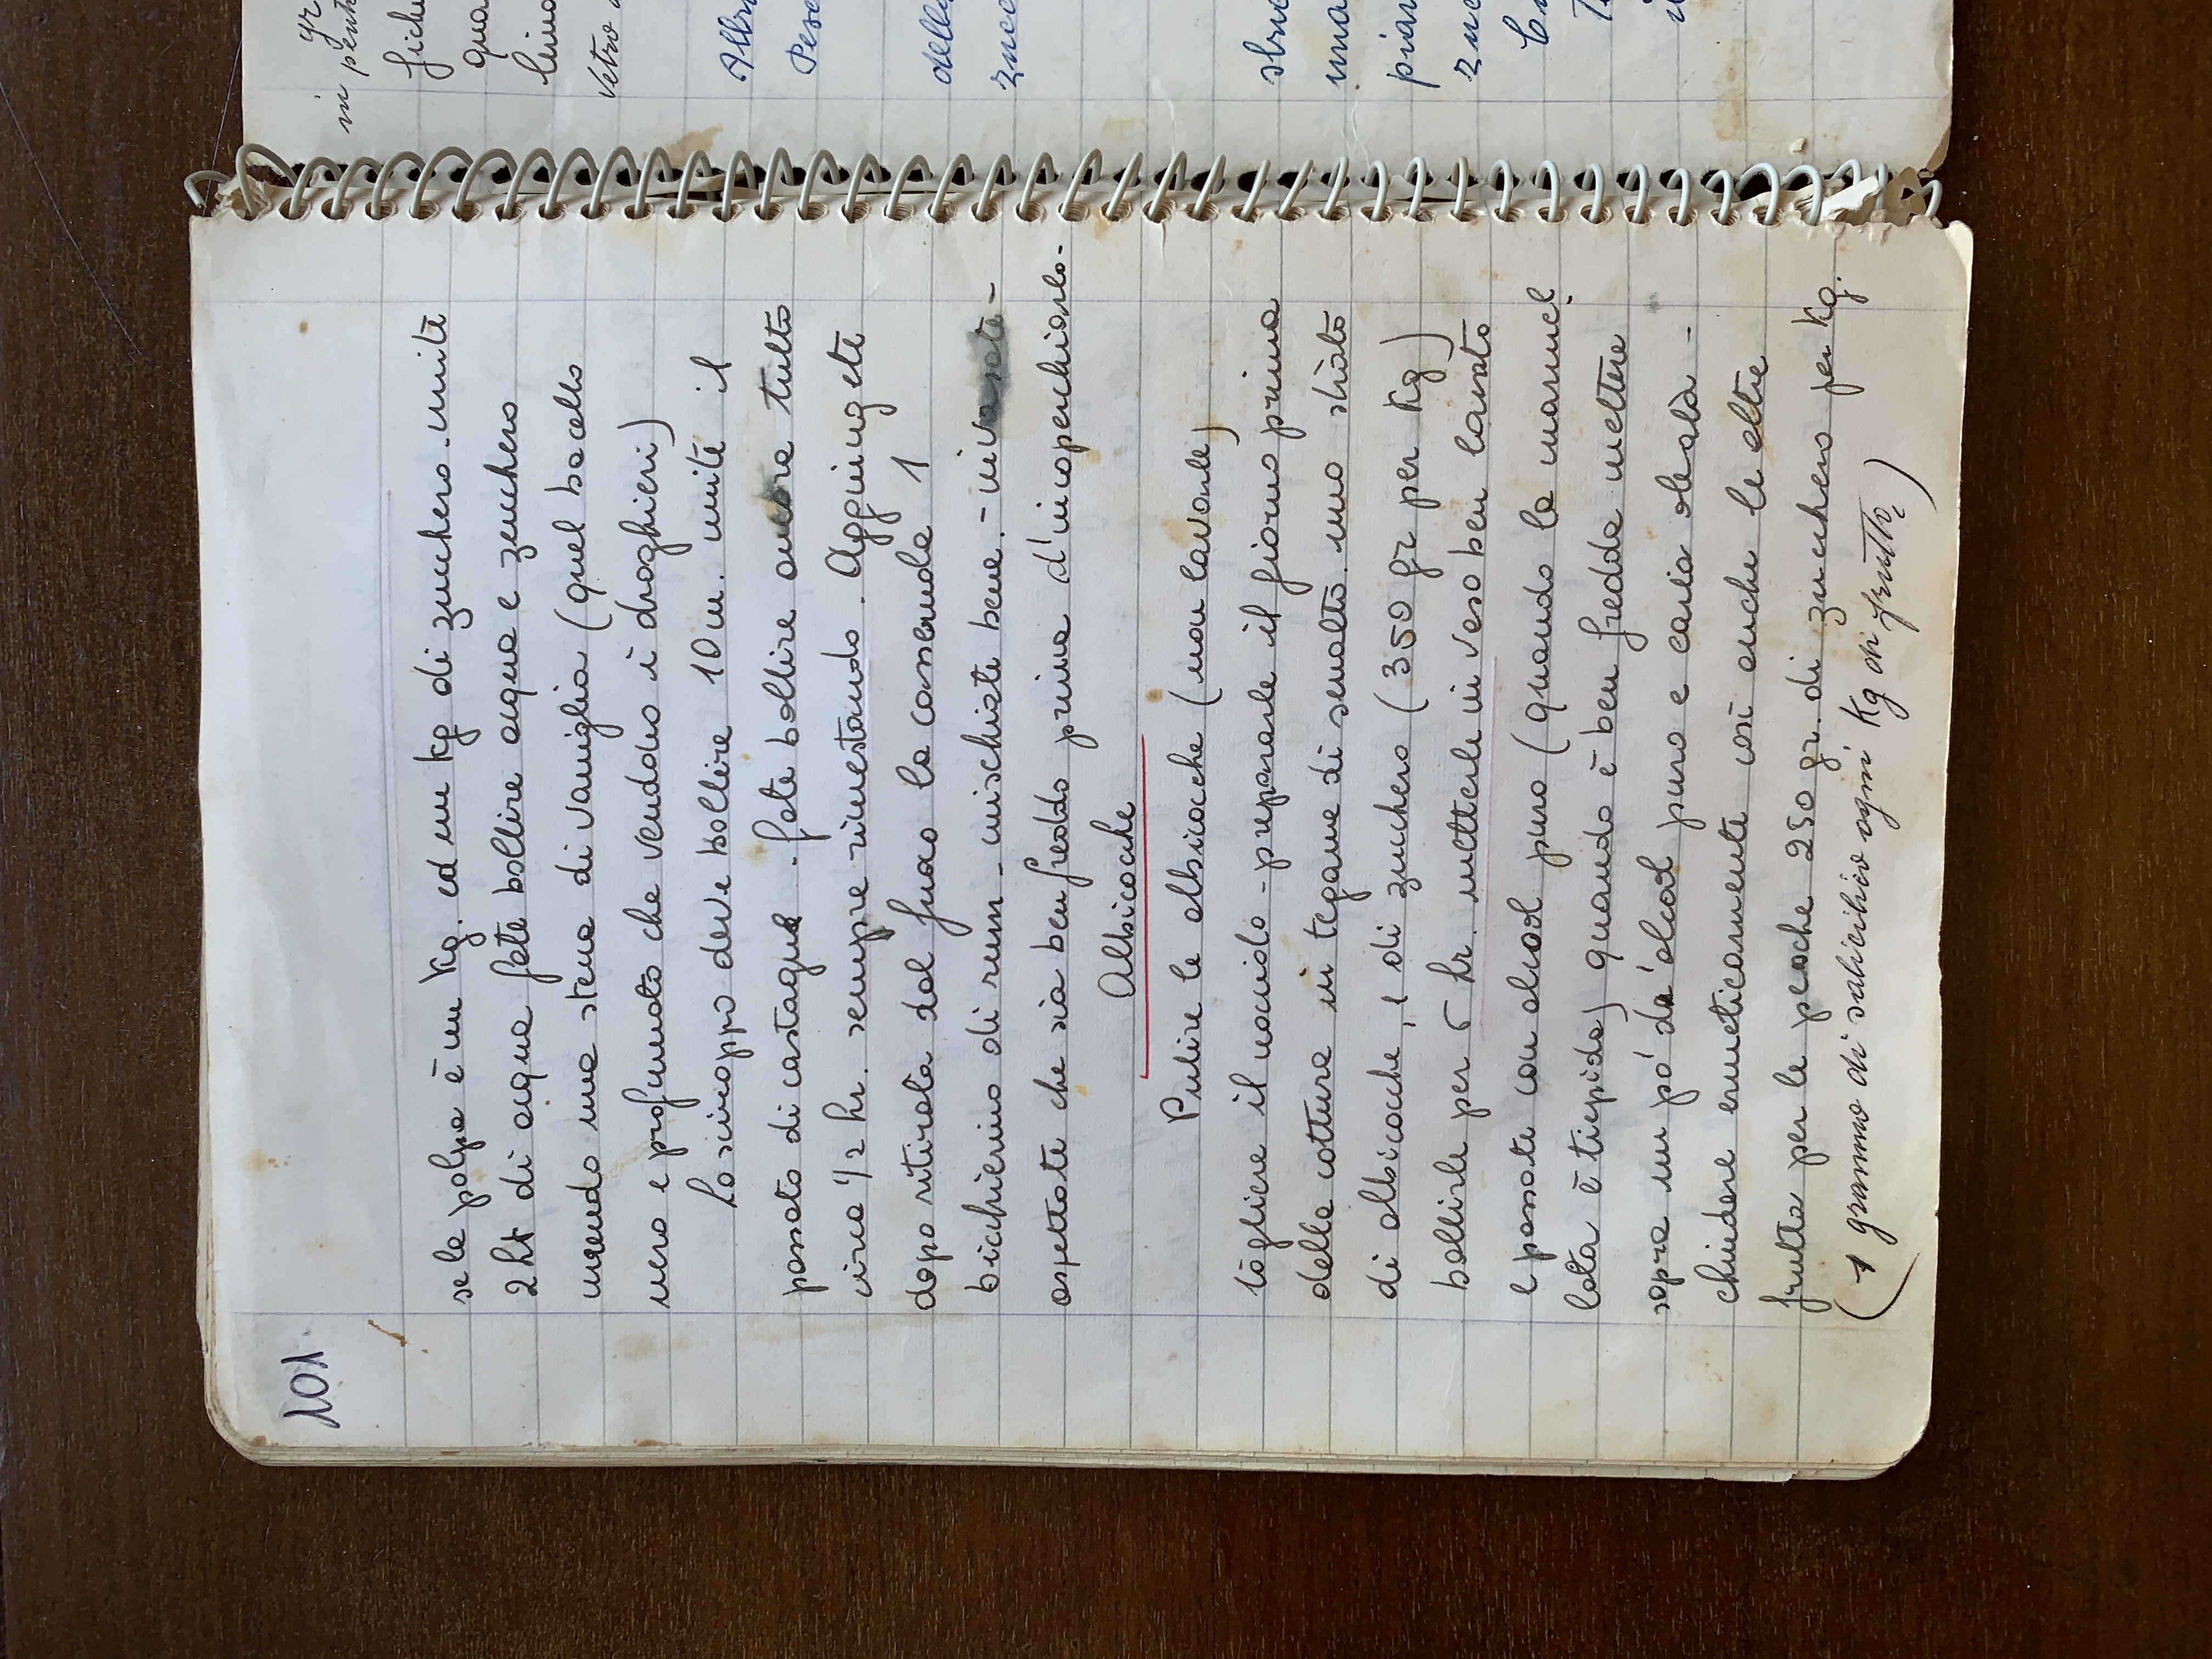 101.
se la polpa è un Kg. ed un Kg di zucchero. unite
2 hl di acqua fate bollire acqua e zucchero
unendo una stecca di vaniglia (quel bacello
nero e profumato che vendono i droghieri)
Lo sciroppo deve bollire 10 m. unite il
passato di castagne - fate bollire ancora tutto
circa 1/2 hr. sempre rimestando. Aggiungete
dopo ritirata dal fuoco la casseruola 1
bicchierino di rum - mischiate bene. - invasate -
aspettate che sia ben freddo prima d'incoperchiarlo -
Albicocche
Pulire le albicocche (non lavarle)
togliere il nocciolo - prepararle il giorno prima
della cottura in tegame di smalto. uno strato
di albicocche, e di zucchero (350 gr per Kg)
bollirle per hr. metterle in vaso ben lavato
e passate con alcool puro (quando la marmel
lata è tiepida) quando è ben fredda mettere
sopra un pó d'alcool puro e carta oleata -
chiudere ermeticamente così anche le altre
frutta per le pesche 250 gr. di zucchero per Kg.
(1 grammo di salicilico ogni Kg di frutta,)
gr
in
fiche
qua
vetro
Albi
Pesc
della
zucc
una
pian
zuc